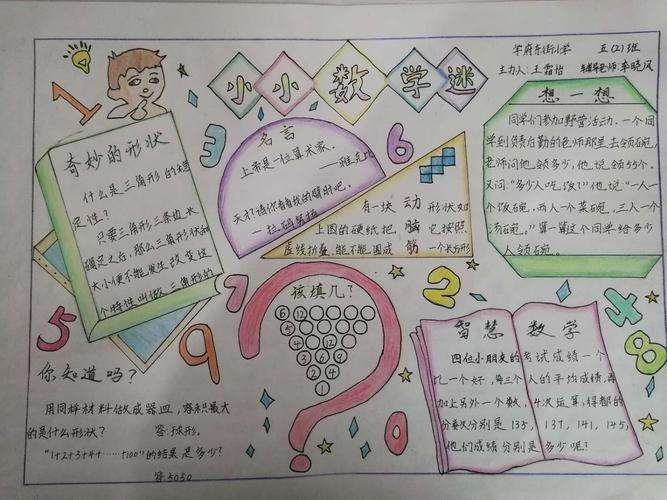 学府东街小学 五(2)班
主办人:王露怡 辅导老师 李晓凤
小小数学迷
1
奇妙的形状
什么是三角形的稳
定性?
只要三角形三条边长
确定之后,那么三角形状和
大小便不能发生改变这
个特性叫做 三角形的
3
名言
上帝是一位算术家.
—雅克比
—拉码努扬
6
有一块 形状如
上图的硬纸把 它按照
虚线折叠,能不能围成 一个长方形
动脑筋
想一想
同学们参加野营活动.一个同
学到负责后勤的老师那里去领碗.
老师问他领多少,他说领55个.
又问:"多少人吃饭?"他说"一人一
个饭碗,两人一个菜碗,三人一个
汤碗."算一算这个同学给多少
人领碗.
5
9
7
2
4
8
0
该填几?
6 12
5
4
4 6
2 4
1
智慧数学
四位小朋友的考试成绩一个
比一个好,每三个人的平均成绩,再
加上另外一个数,4次运算,得都的
分数次分别是135,137,141,145,
他们成绩分别是多少呢?
你知道吗?
用同样材料做成器皿,容积最大
的是什么形状? 答:球形.
"1+2+3+4……+100"的结果是多少?
答5050